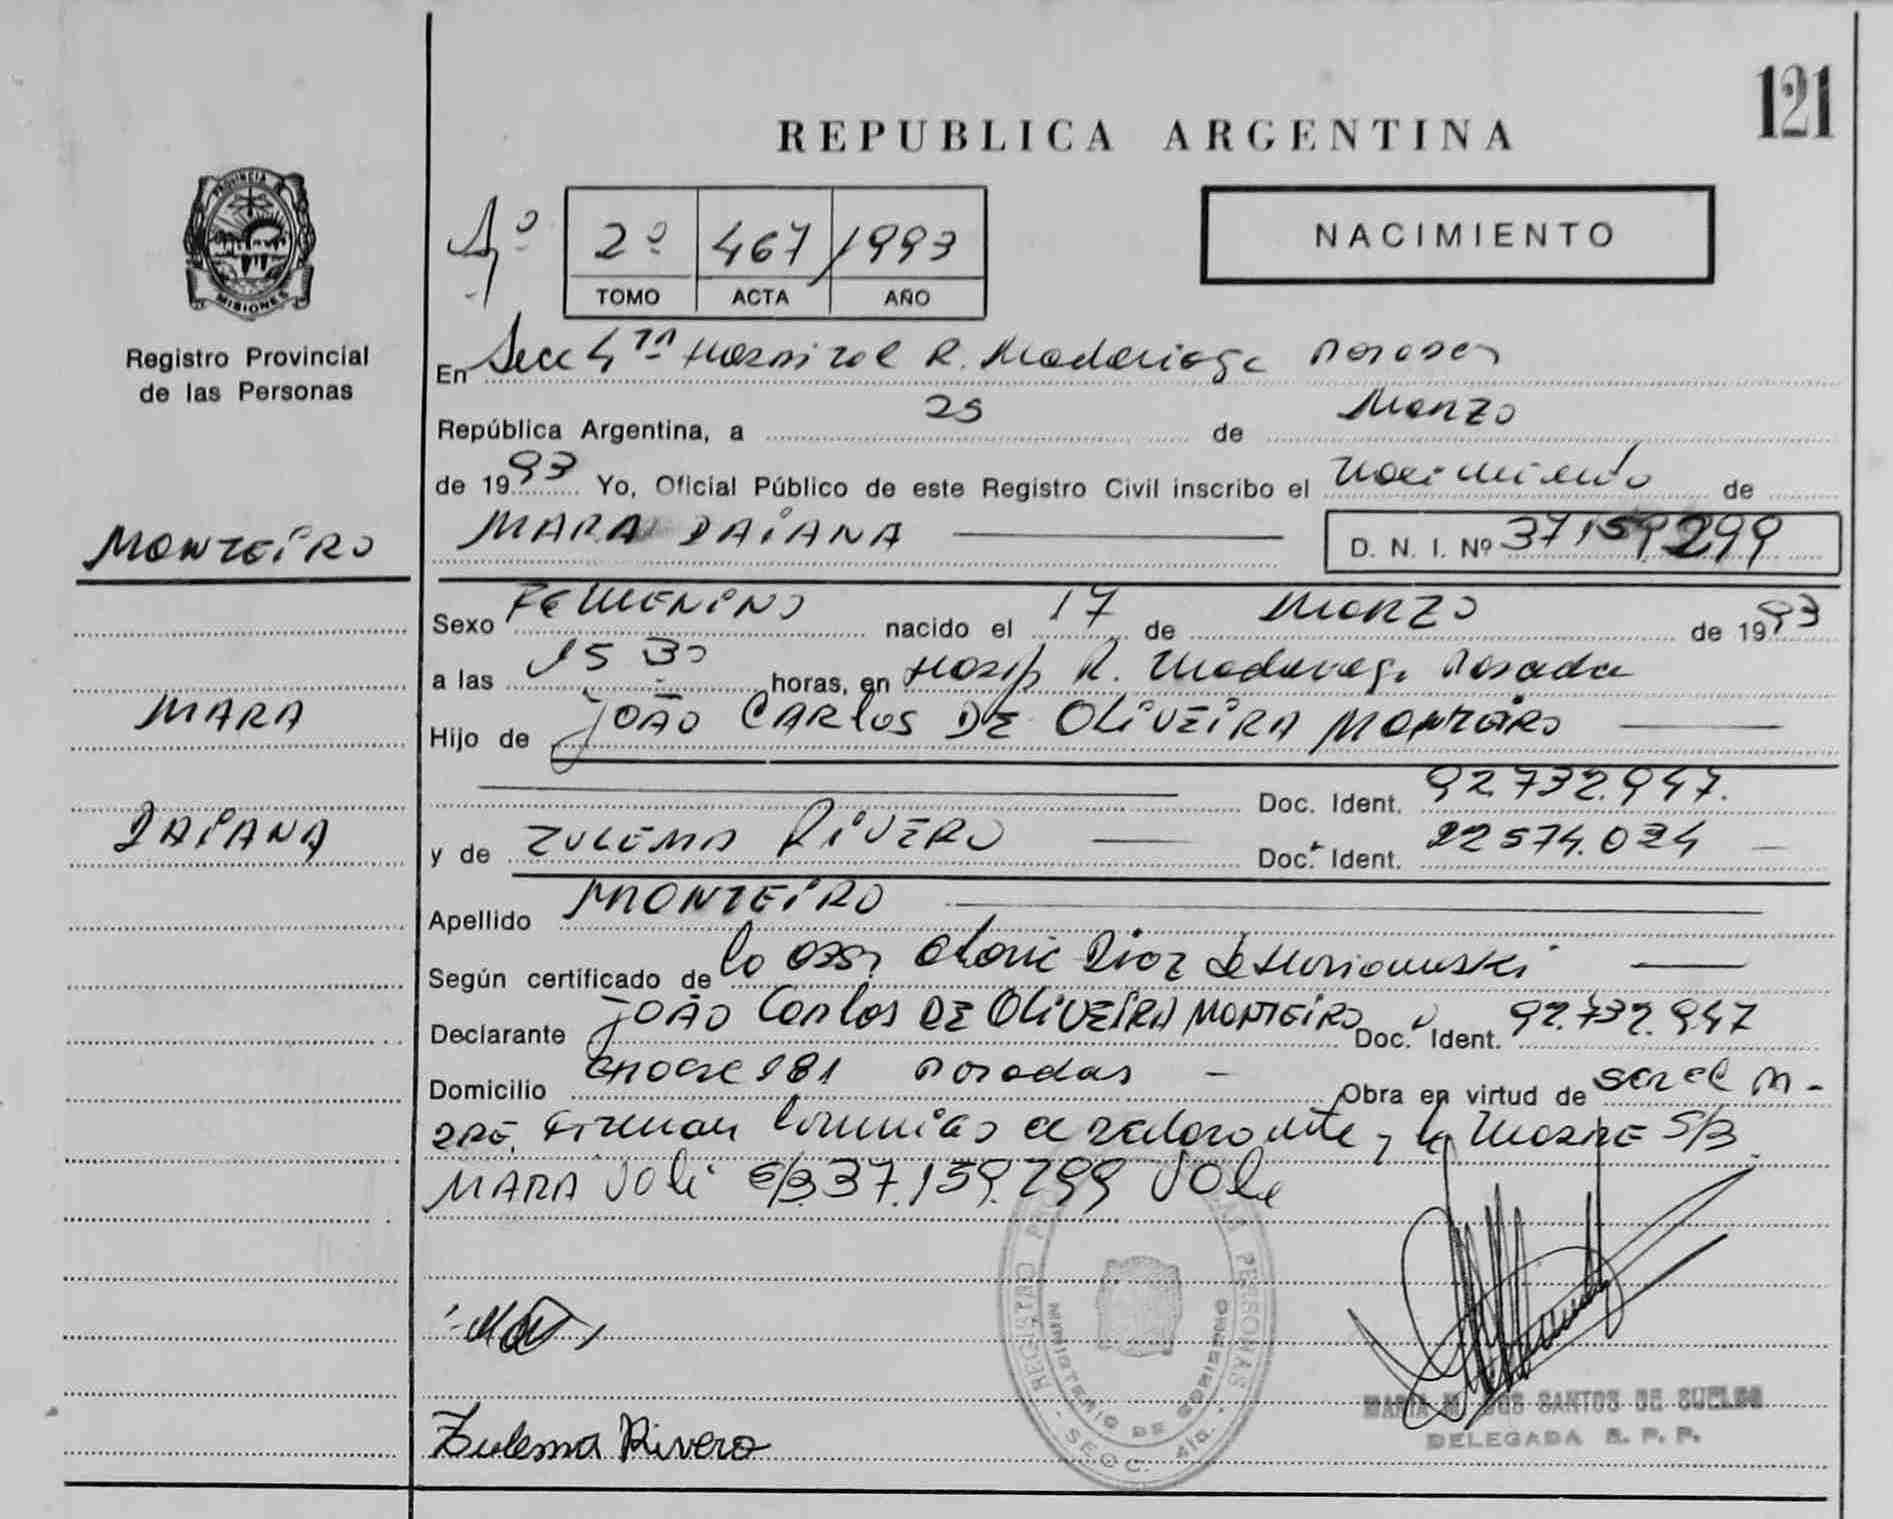 121
REPUBLICA ARGENTINA
4º 2º 467 1993
TOMO ACTA AÑO
NACIMIENTO
PROVINCIA DE
MISIONES
Registro Provincial
de las Personas
En Secc 4ta Hospital R. Madariaga Posadas
República Argentina, a 25 de Marzo
de 1993 Yo, Oficial Público de este Registro Civil inscribo el nacimiento de
MONTEIRO
MARA DAIANA
D. N. I. Nº 37.159.299
Sexo FEMENINO nacido el 17 de Marzo de 1993
a las 15 30 horas, en Hosp R. Madariaga Posadas
MARA
Hijo de JOÃO CARLOS DE OLIVEIRA MONTEIRO
Doc. Ident. 92.732.947.
DAIANA
y de ZULEMA RIVERO Doc. Ident. 22574.024
Apellido MONTEIRO
Según certificado de la Obst Diaz de
Declarante JOÃO Carlos DE OLIVEIRA MONTEIRO Doc. Ident. 92.732.947
Domicilio 981 Posadas - Obra en virtud de ser el pa-
dre, Firman conmigo el declarante y la madre S/B
MARA Vale E/B 37.159.299 Vale
REGISTRO PERSONAS
MINISTERIO DE GOBIERNO
SECC. 4ta.
Zulema Rivero
MARIA M. DOS SANTOS DE SUELDO
DELEGADA R. P. P.